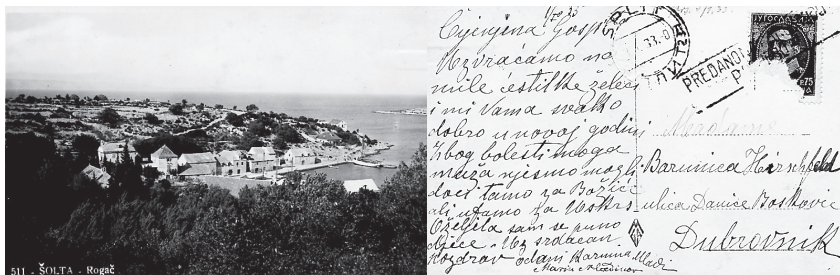 511 - ŠOLTA - Rogač
Cijenjena Gospo
Uzvraćamo na
mile čestitke želeći
i mi Vama svako
dobro u novoj godini
Zbog bolesti moga
muža nijesmo mogli
doći tamo za Božić
ali ufamo za Uskrs
Oželjila sam se puno
djece. Uz srdačan
pozdrav odani Baruna Mladi
SPLIT
33.0
СПЛИТ
PREDANO
P
ЈУГОСЛАВ
P 75
Madame
Barunica Hirschfeld
ulica Danice Bošković
Dubrovnik